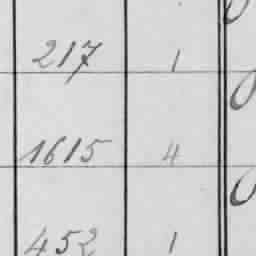 217 1
1615 4
452 1